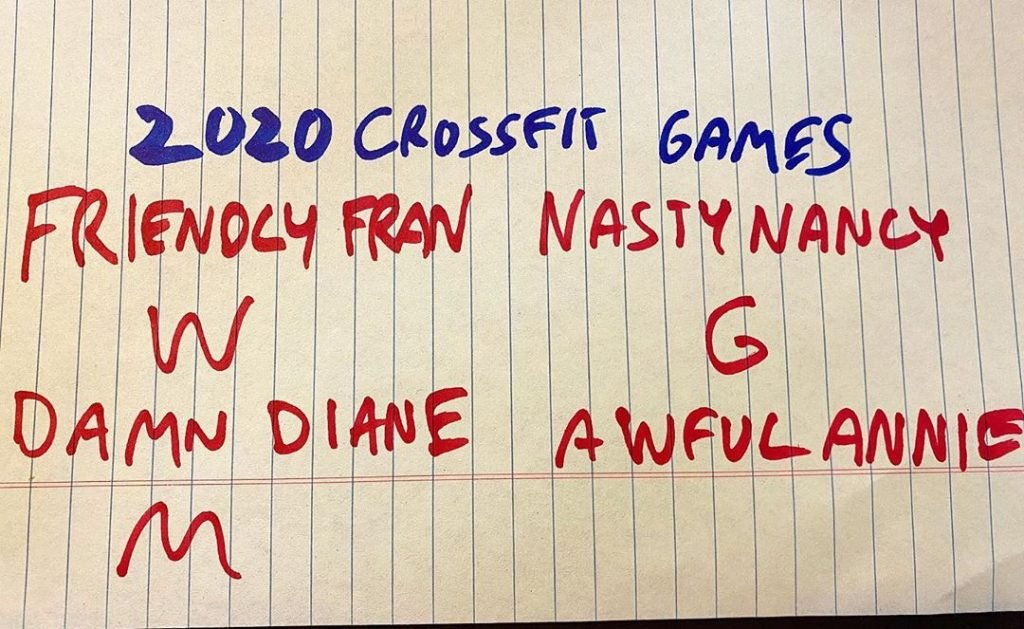 2020 CROSSFIT GAMES
FRIENDLY FRAN NASTY NANCY
W G
DAMN DIANE AWFUL ANNIE
M